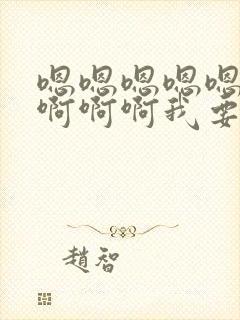 嗯嗯嗯嗯嗯
啊啊啊我要
趙智